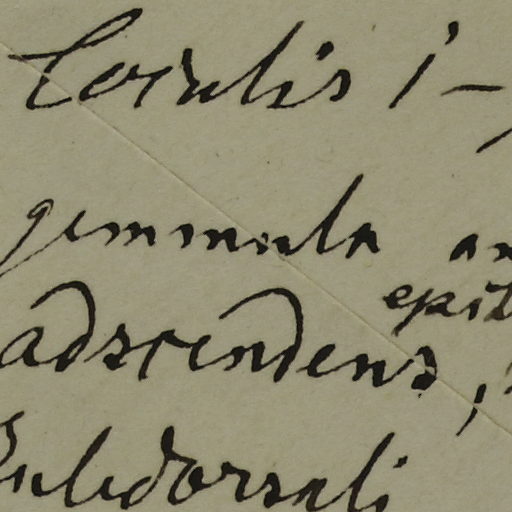 loculis 1-
gemmula an
epit
adscendens,
Subdorsali